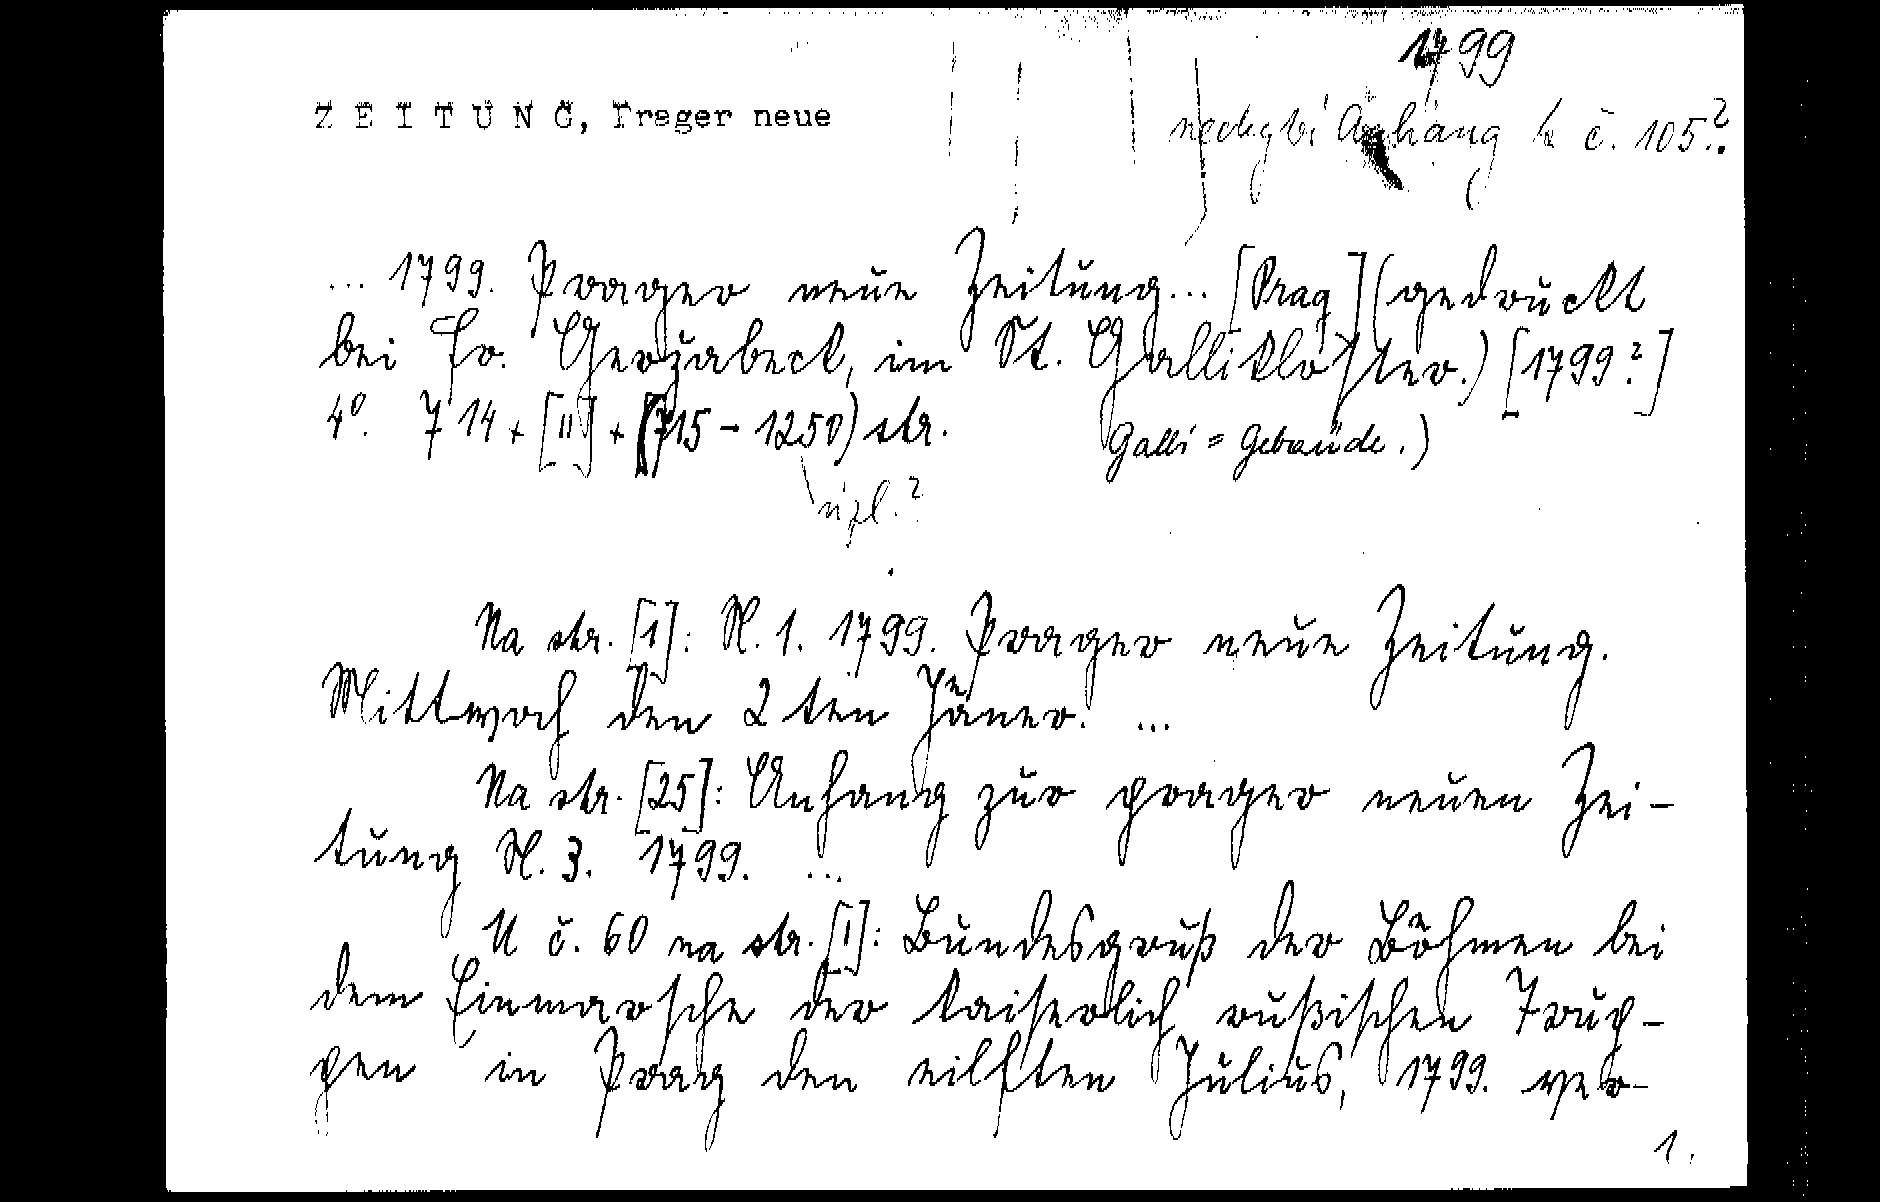 1799
Z E I T U N G, Prager neue
nechybí Anhang k č. 105?
... 1799. Prager neue Zeitung... [Prag] (gedruckt
bei Fr. Gerzabeck, im St. Gallikloster.) [1799?]
4°. 714 + [II] + (715 - 1250) str.
Galli = Gebäude.)
úpl.?
Na str. [1]: N. 1. 1799. Prager neue Zeitung.
Mittwoch den 2ten Jäner. ...
Na str. [25]: Anhang zur prager neuen Zei-
tung N. 3. 1799. ...
U č. 60 na str. [I]: Bundesgruß der Böhmen bei
dem Einmarsche der kaiserlich rußischen Trup-
pen in Prag den eilften Julius, 1799. ver-
1.